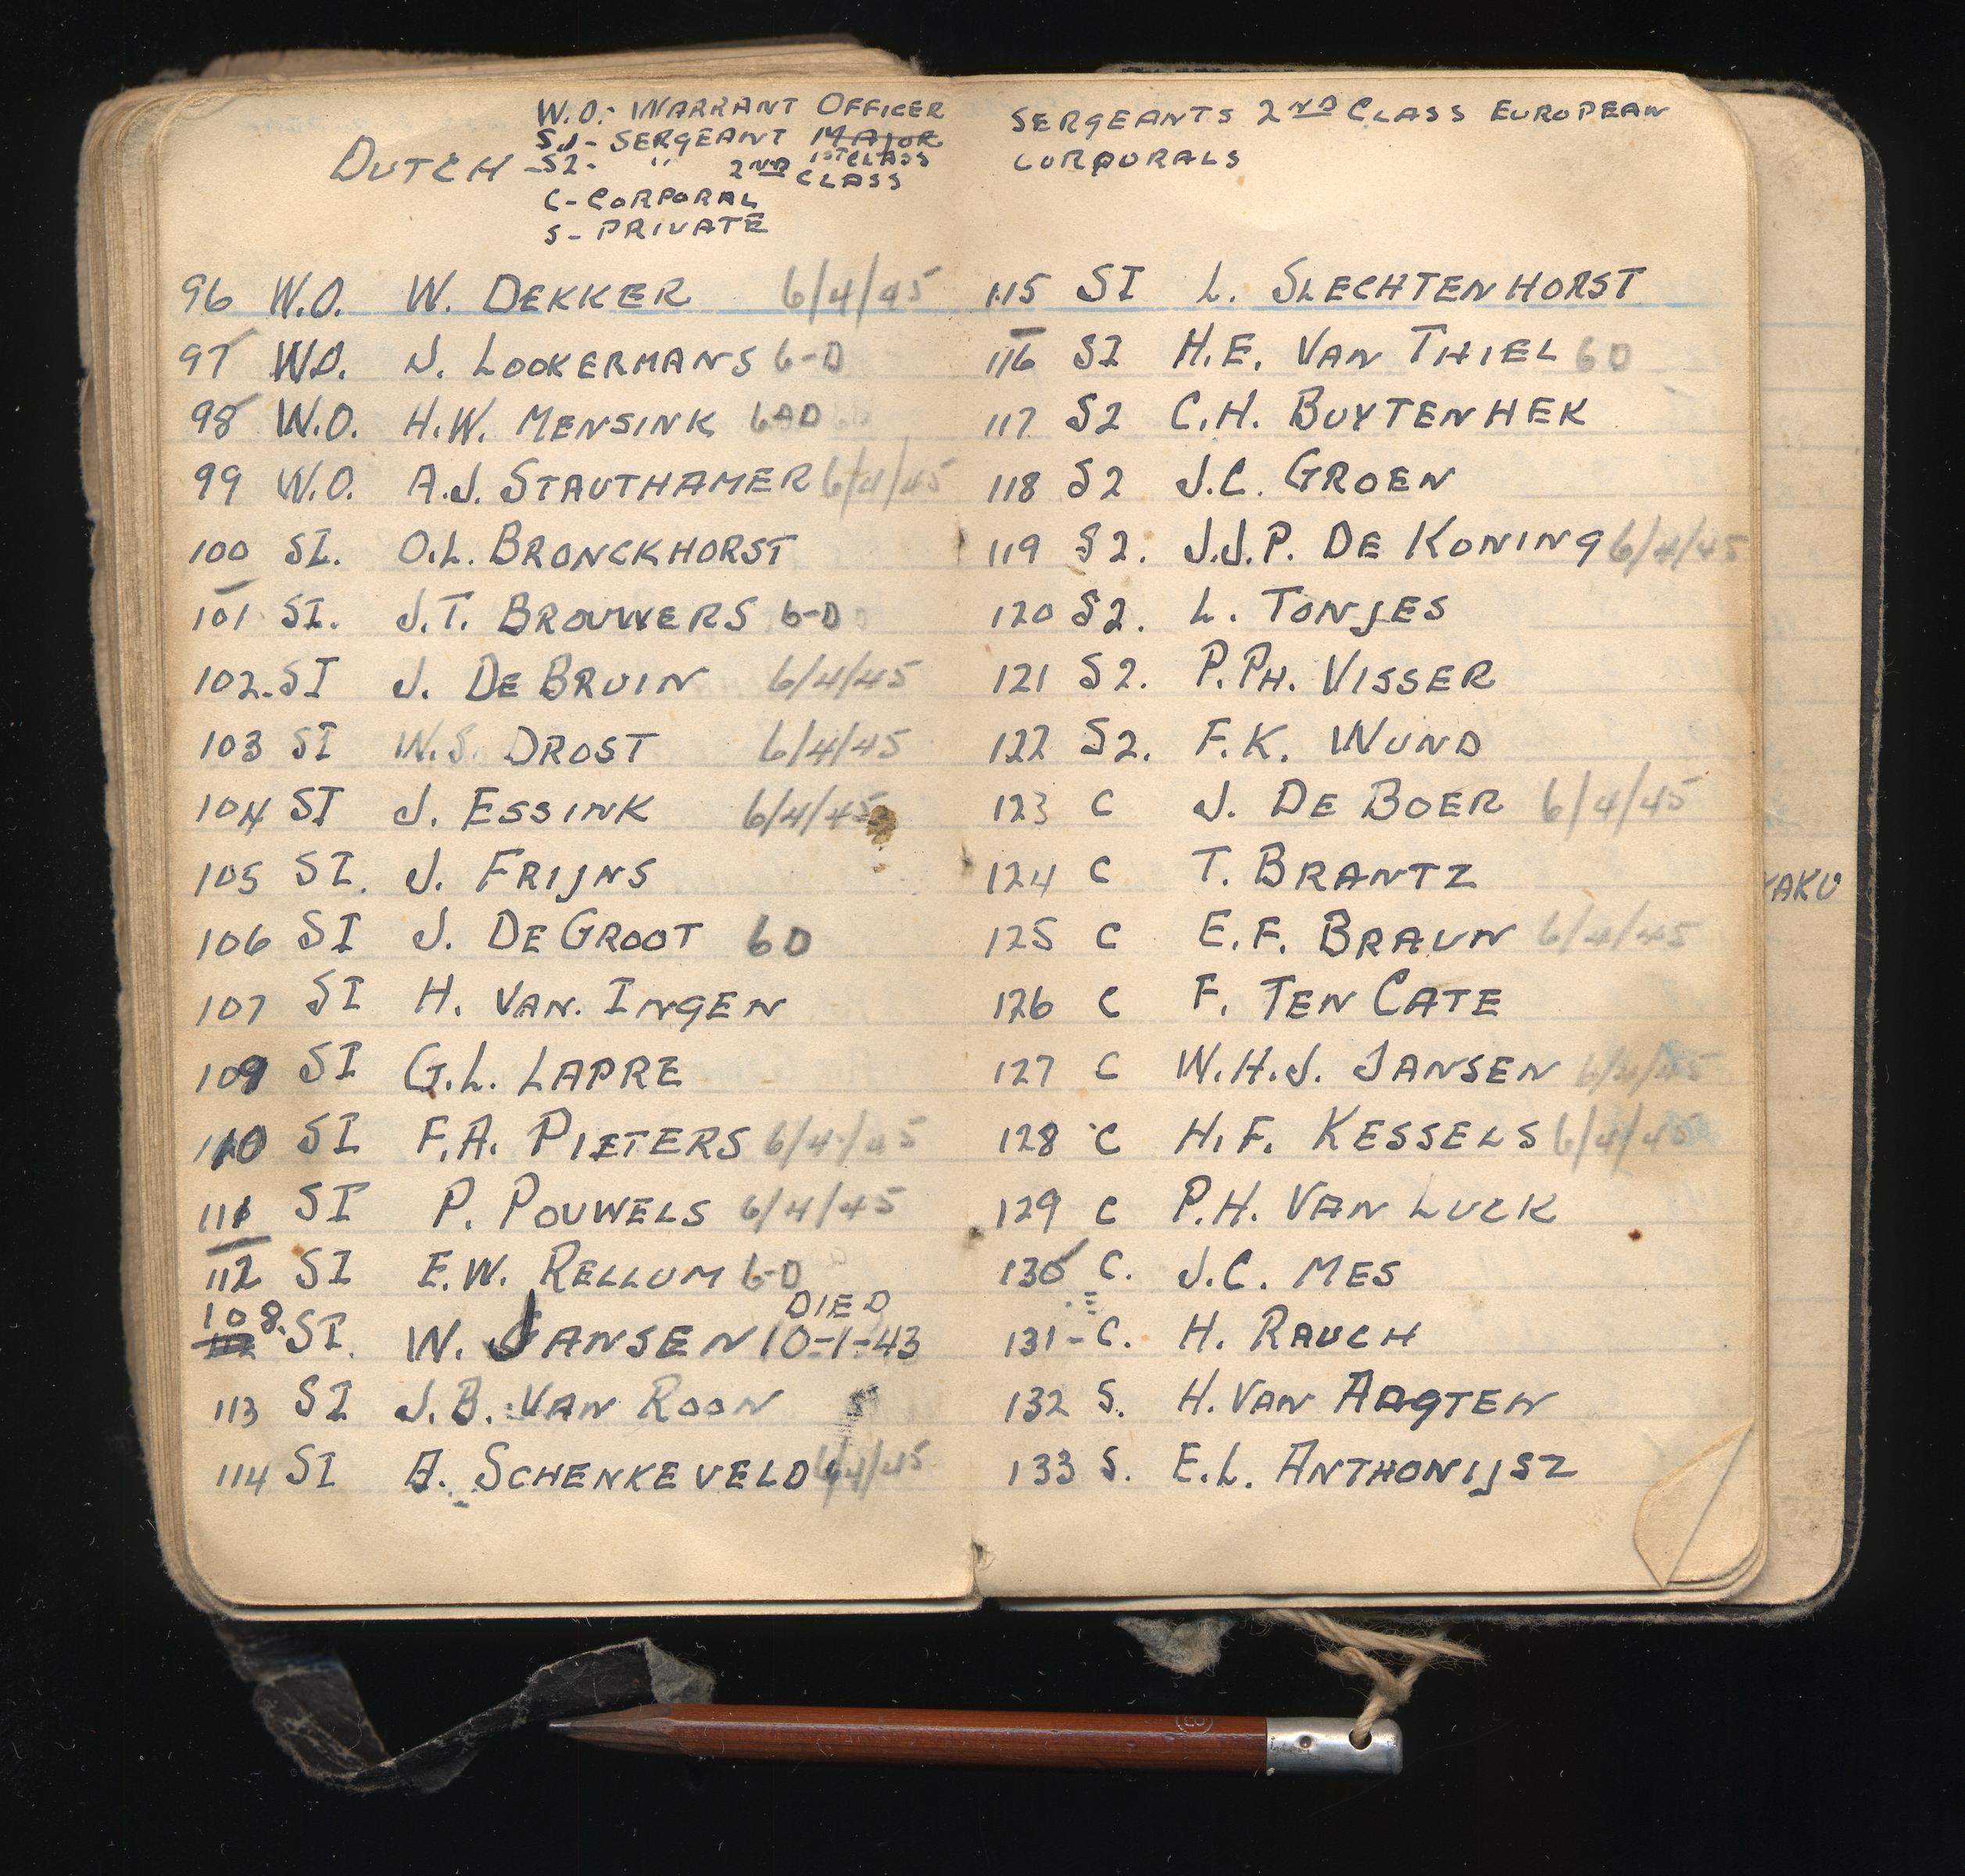 W.O.- WARRANT OFFICER
DUTCH -
S1 - SERGEANT MAJOR 1ST CLASS
S2 - " 2ND CLASS
C - CORPORAL
S - PRIVATE
96 W.O. W. DEKKER 6/4/45
97 W.O. N. LOOKERMANS 6-D
98 W.O. H.W. MENSINK 6-D
99 W.O. A.J. STAUTHAMER 6/4/45
100 SI. O.L. BRONCKHORST
101 SI. J.T. BROUWERS 6-D
102. SI J. DE BRUIN 6/4/45
103 SI W.S. DROST 6/4/45
104 SI J. ESSINK 6/4/45
105 SI. J. FRIJNS
106 SI J. DE GROOT 6D
107 SI H. VAN. INGEN
109 SI G.L. LAPRE
110 SI F.A. PIETERS 6/4/45
111 SI P. POUWELS 6/4/45
112 SI E.W. RELLUM 6-D
108. SI. W. JANSEN DIED 10-1-43
113 SI J.B. VAN ROON
114 SI A. SCHENKEVELD 6/4/45
SERGEANTS 2ND CLASS EUROPEAN
CORPORALS
115 SI L. SLECHTENHORST
116 SI H.E. VAN THIEL 6D
117 S2 C.H. BUYTENHEK
118 S2 J.C. GROEN
119 S2. J.J.P. DE KONING 6/4/45
120 S2. L. TONJES
121 S2. P.PH. VISSER
122 S2. F.K. WUND
123 C J. DE BOER 6/4/45
124 C T. BRANTZ
125 C E.F. BRAUN 6/4/45
126 C F. TEN CATE
127 C W.H.J. JANSEN 6/4/45
128 C H.F. KESSELS 6/4/45
129 C P.H. VAN LUCK
130 C. J.C. MES
131 - C. H. RAUCH
132 S. H. VAN AAGTEN
133 S. E.L. ANTHONIJSZ